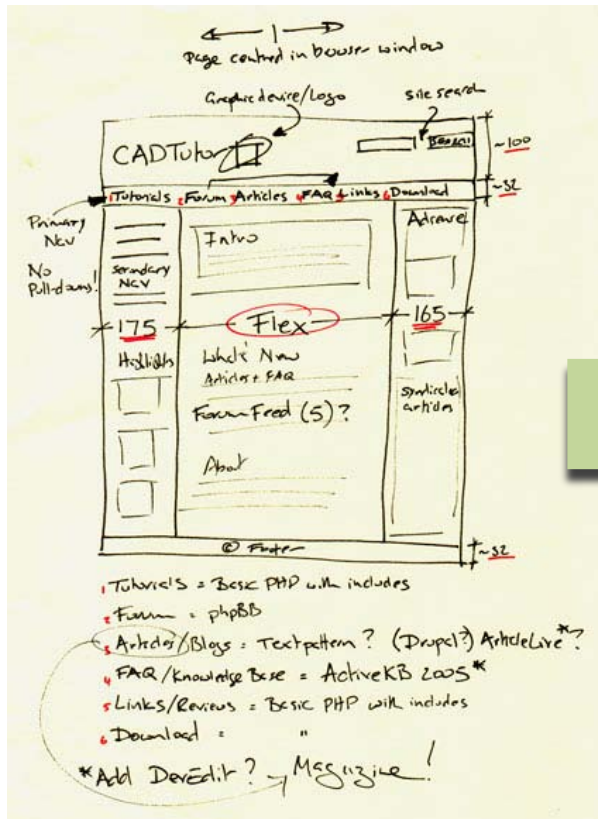 Page centred in browser window
Graphic device/Logo
site search
CADTutor
Search
~100
1 Tutorials 2 Forum 3 Articles 4 FAQ 5 Links 6 Download
~32
Primary Nav
No Pull-downs!
Secondary Nav
Intro
175
Flex
165
Highlights
What's New
Articles + FAQ
Forum Feed (5) ?
About
articles
© Footer
~32
1 Tutorials = Basic PHP with includes
2 Forum = phpBB
3 Articles/Blogs = Textpattern? (Drupal?) ArticleLive*?
4 FAQ/Knowledge Base = ActiveKB 2005*
5 Links/Reviews = Basic PHP with includes
6 Download = "
*Add DevEdit? Magazine!